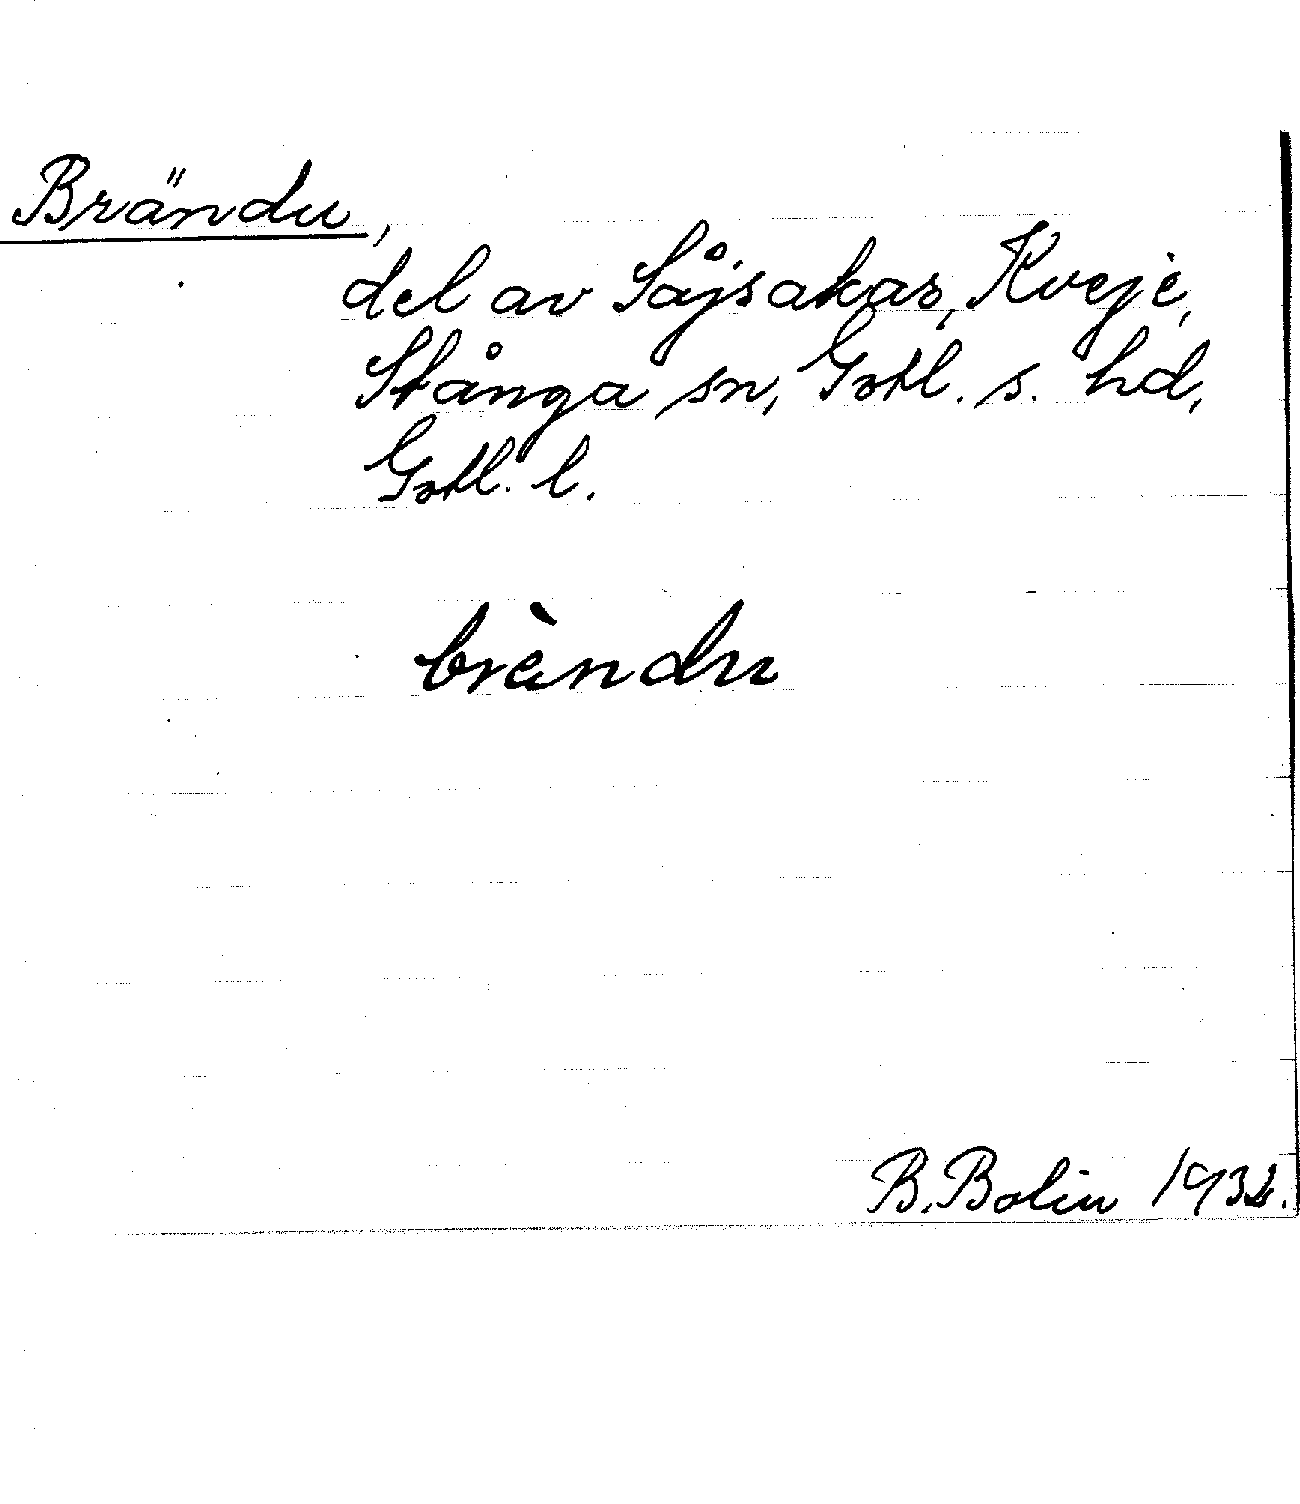 Brändu,
del av Såjsakar, Kveje,
Stånga sn, Gotl. s. hd,
Gotl. l.
brèndu
B. Bolin 1932.